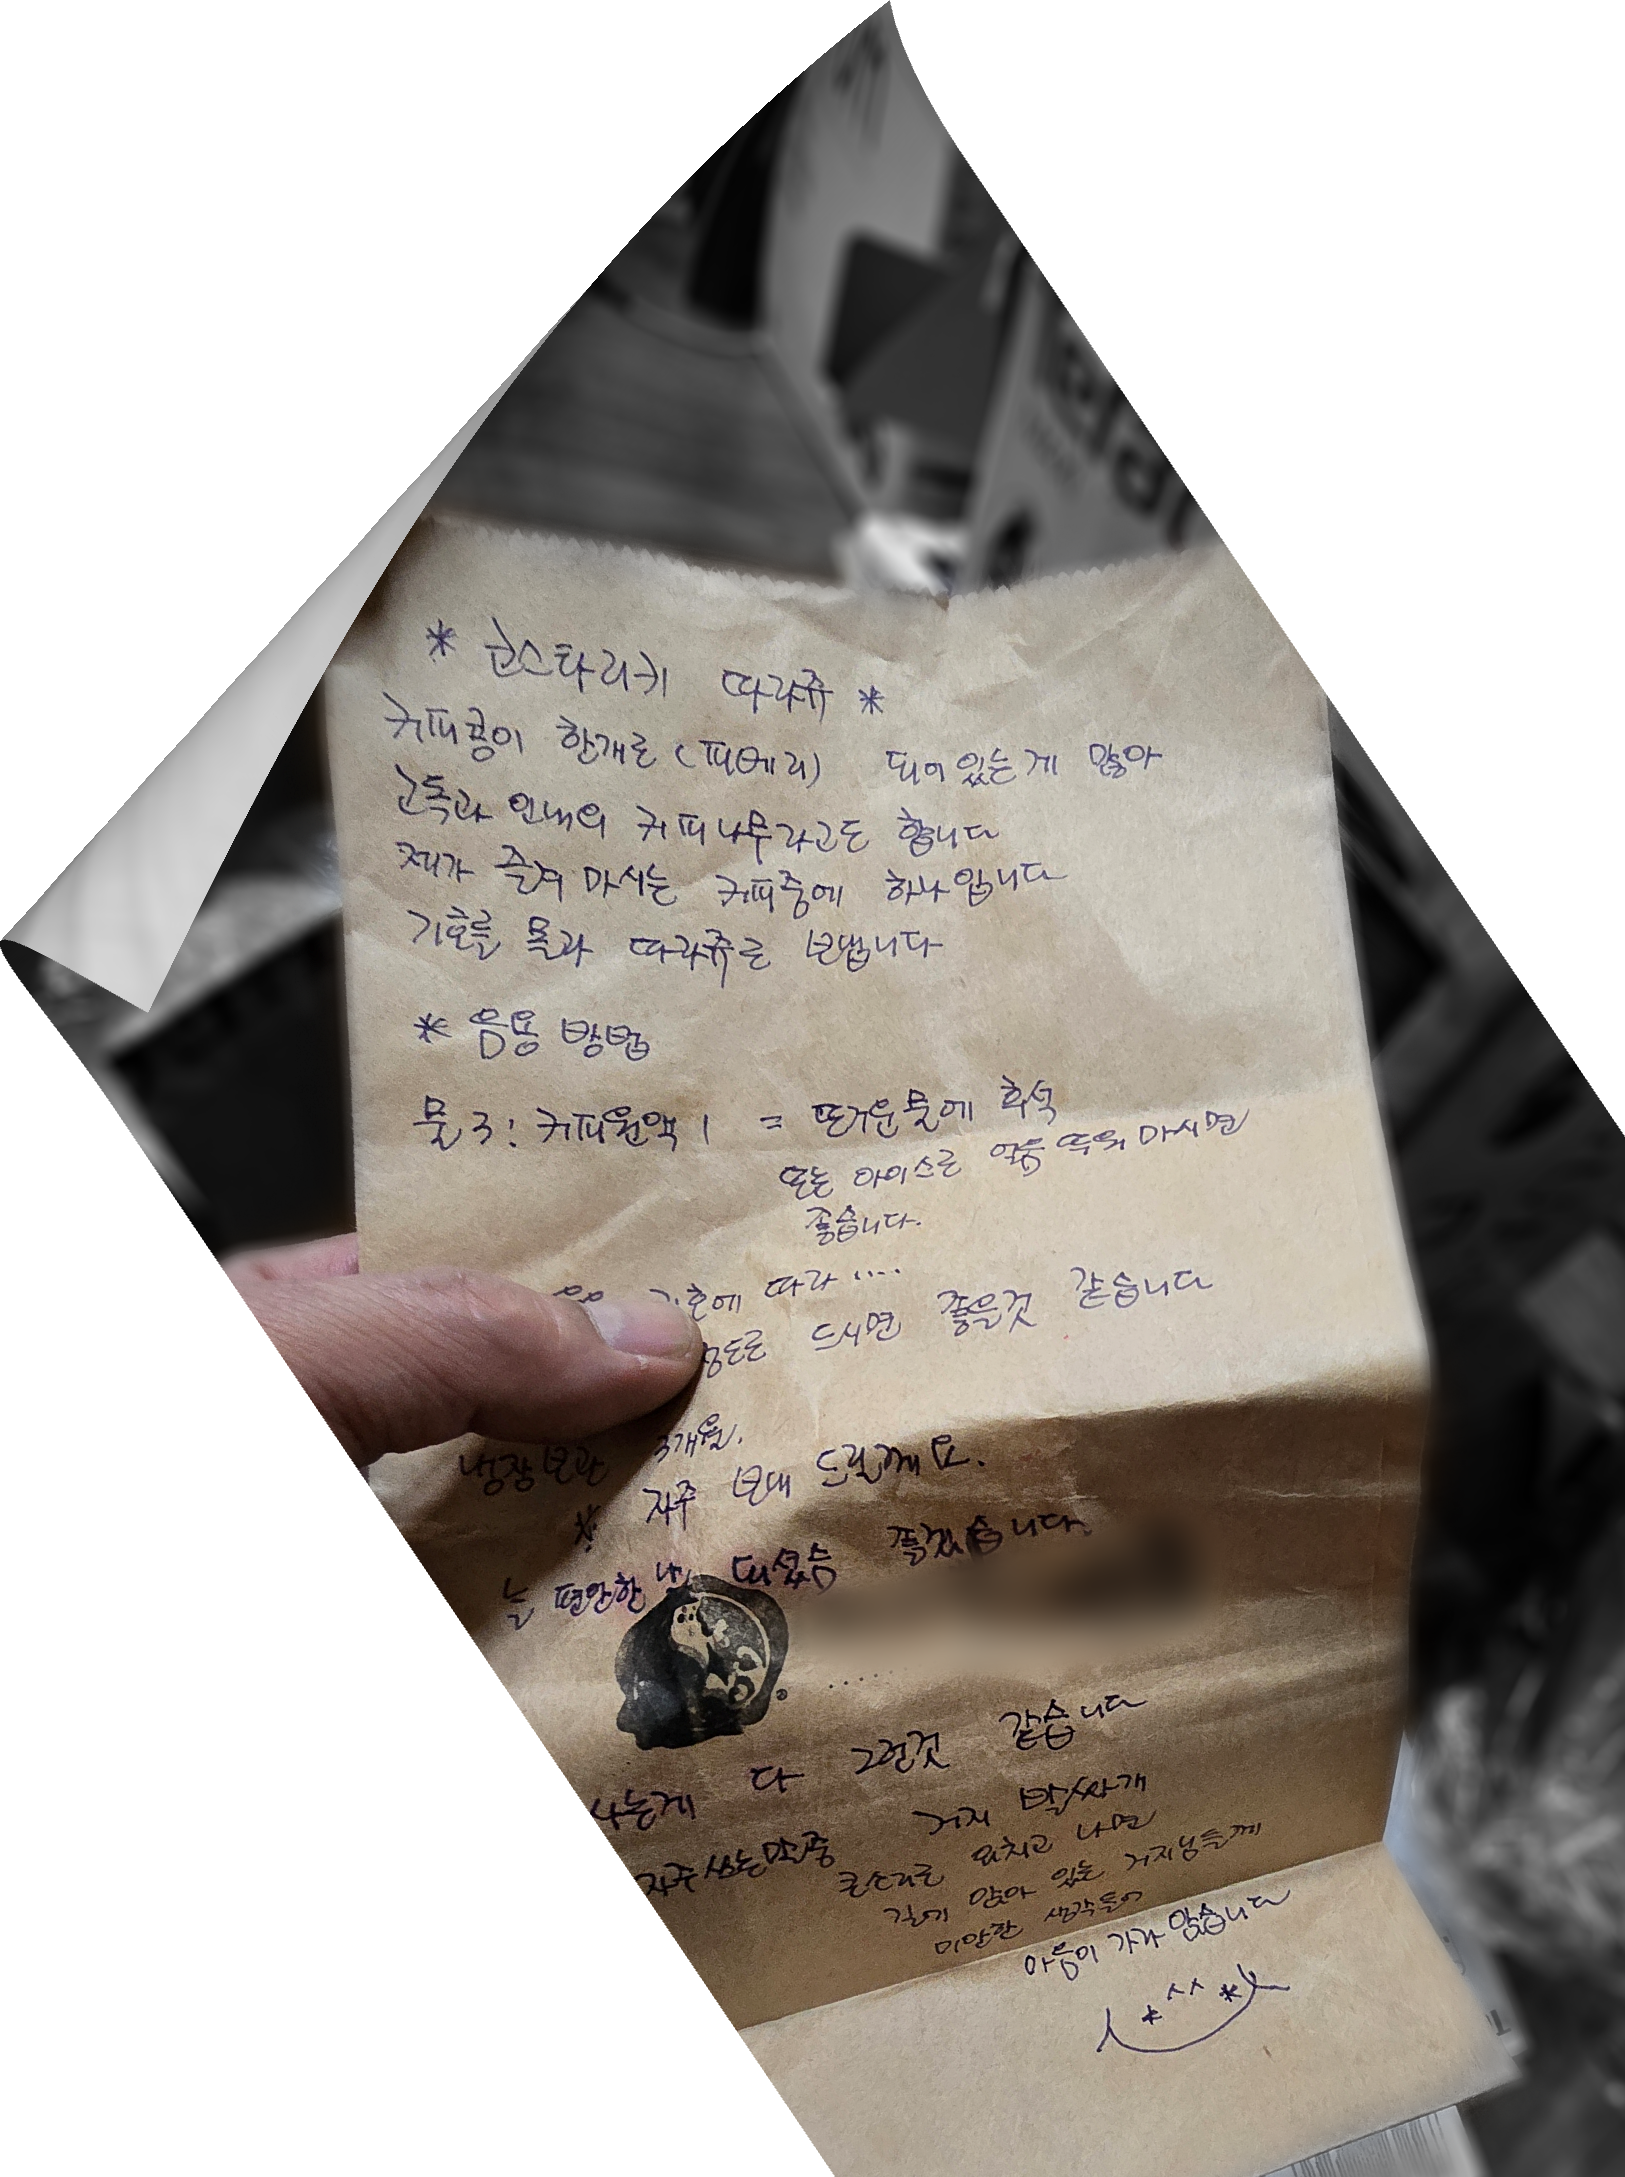 * 코스타리카 따라쥬 *
커피콩이 한개로 (피베리) 되어 있는게 많아
고독과 인내의 커피나무라고도 합니다
제가 즐겨 마시는 커피중에 하나입니다
기호를 몰라 따라쥬로 보냅니다
* 음용 방법
물 3 : 커피원액 1 = 뜨거운물에 희석
또는 아이스로 얼음 띄워 마시면
좋습니다.
기호에 따라 ....
정도로 드시면 좋을것 같습니다
냉장보관 3개월.
* 자주 보내 드릴께요.
늘 편안한 날 되셨슴 좋겠습니다.
사는게 다 그런것 같습니다
자주쓰는말중 거지 발싸개
큰소리로 외치고 나면
길에 앉아 있는 거지님들께
미안한 생각들어
마음이 가라 앉습니다